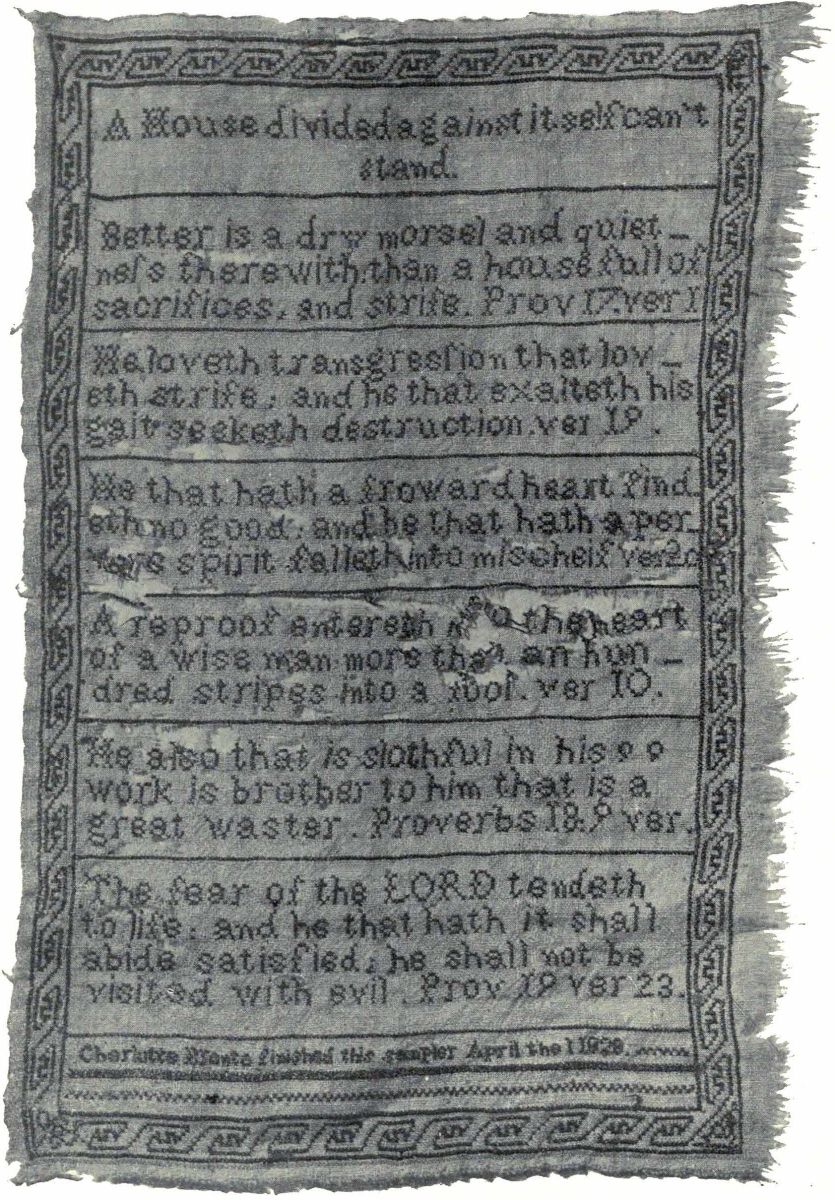 A House divided against itself can't
stand.
Better is a dry morsel and quiet_
neſs therewith, than a house full of
sacrifices, and strife. Prov 17. ver 1
He loveth transgreſsion that lov_
eth strife; and he that exalteth his
gait seeketh destruction. ver 19.
He that hath a froward heart find_
eth no good: and he that hath a per_
verse spirit falleth into mischeif ver 20
A reproof entereth into the heart
of a wise man more than an hun_
dred stripes into a fool. ver 10.
He also that is slothful in his
work is brother to him that is a
great waster. Proverbs 18. 9 ver.
The fear of the LORD tendeth
to life: and he that hath it shall
abide satisfied; he shall not be
visited with evil. Prov 19 ver 23.
Charlotte Bronte finished this sampler April the 1 1829.